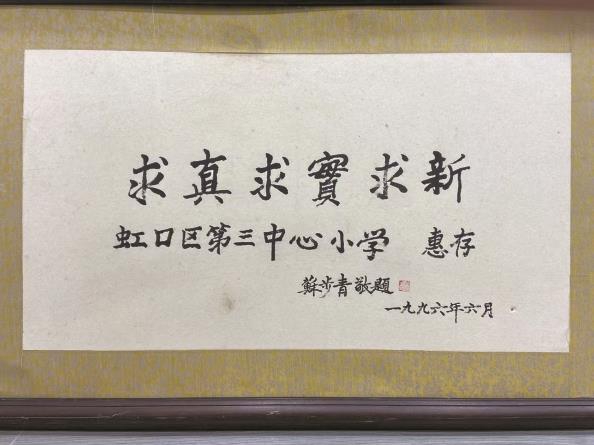 求真求實求新
虹口区第三中心小学 惠存
蘇步青敬題
一九九六年六月